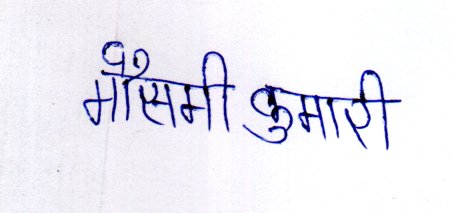 मौसमी कुमारी